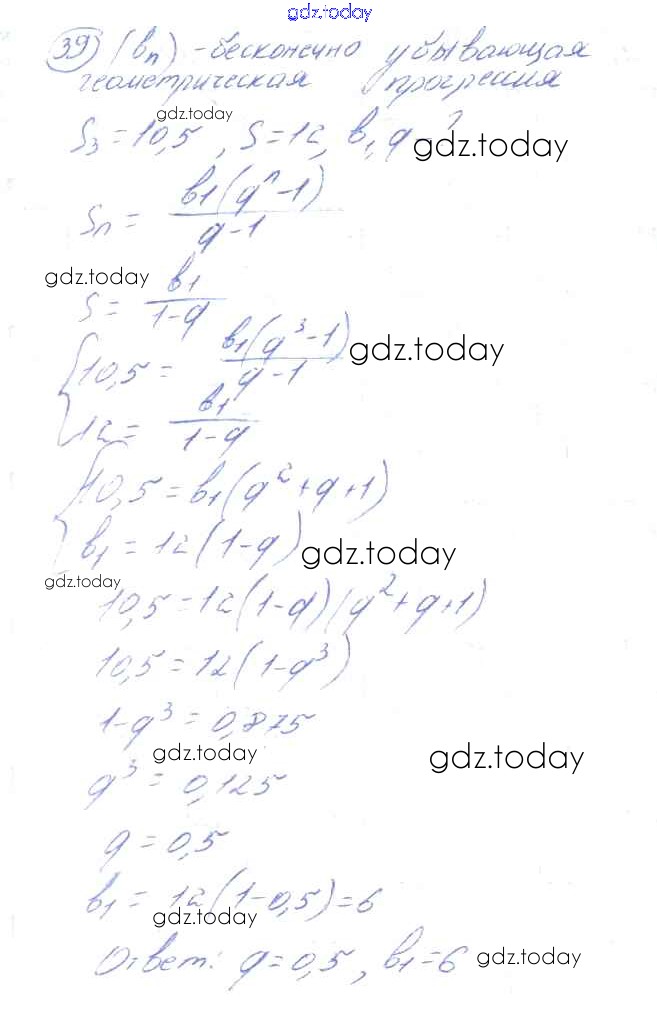 gdz.today
39) (bn) - бесконечно убывающая
геометрическая прогрессия
gdz.today
S₃ = 10,5, S = 12, b₁, q - ?
gdz.today
Sn = b₁(qⁿ - 1) / (q - 1)
gdz.today
S = b₁ / (1 - q)
{ 10,5 = b₁(q³ - 1) / (q - 1)
gdz.today
12 = b₁ / (1 - q)
{ 10,5 = b₁(q² + q + 1)
b₁ = 12(1 - q)
gdz.today
gdz.today
10,5 = 12(1 - q)(q² + q + 1)
10,5 = 12(1 - q³)
1 - q³ = 0,875
gdz.today
gdz.today
q³ = 0,125
q = 0,5
b₁ = 12(1 - 0,5) = 6
gdz.today
Ответ: q = 0,5, b₁ = 6
gdz.today